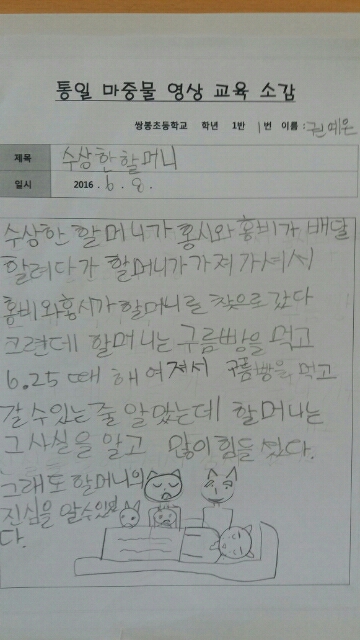 통일 마중물 영상 교육 소감
쌍룡초등학교 학년 1반 1번 이름: 권예은
제목 수상한 할머니
일시 2016. 6. 8.
수상한 할머니가 홍시와 홍비가 배달
할려다가 할머니가 가져가셔서
홍비와 홍시가 할머니를 찾으로 갔다
크런데 할머니는 구름빵을 먹고
6.25 때 해여져서 구름빵을 먹고
갈 수 있는 줄 알았는데 할머니는
그 사실을 알고 많이 힘들셨다.
그래도 할머니의
진심을 알수있었
다.